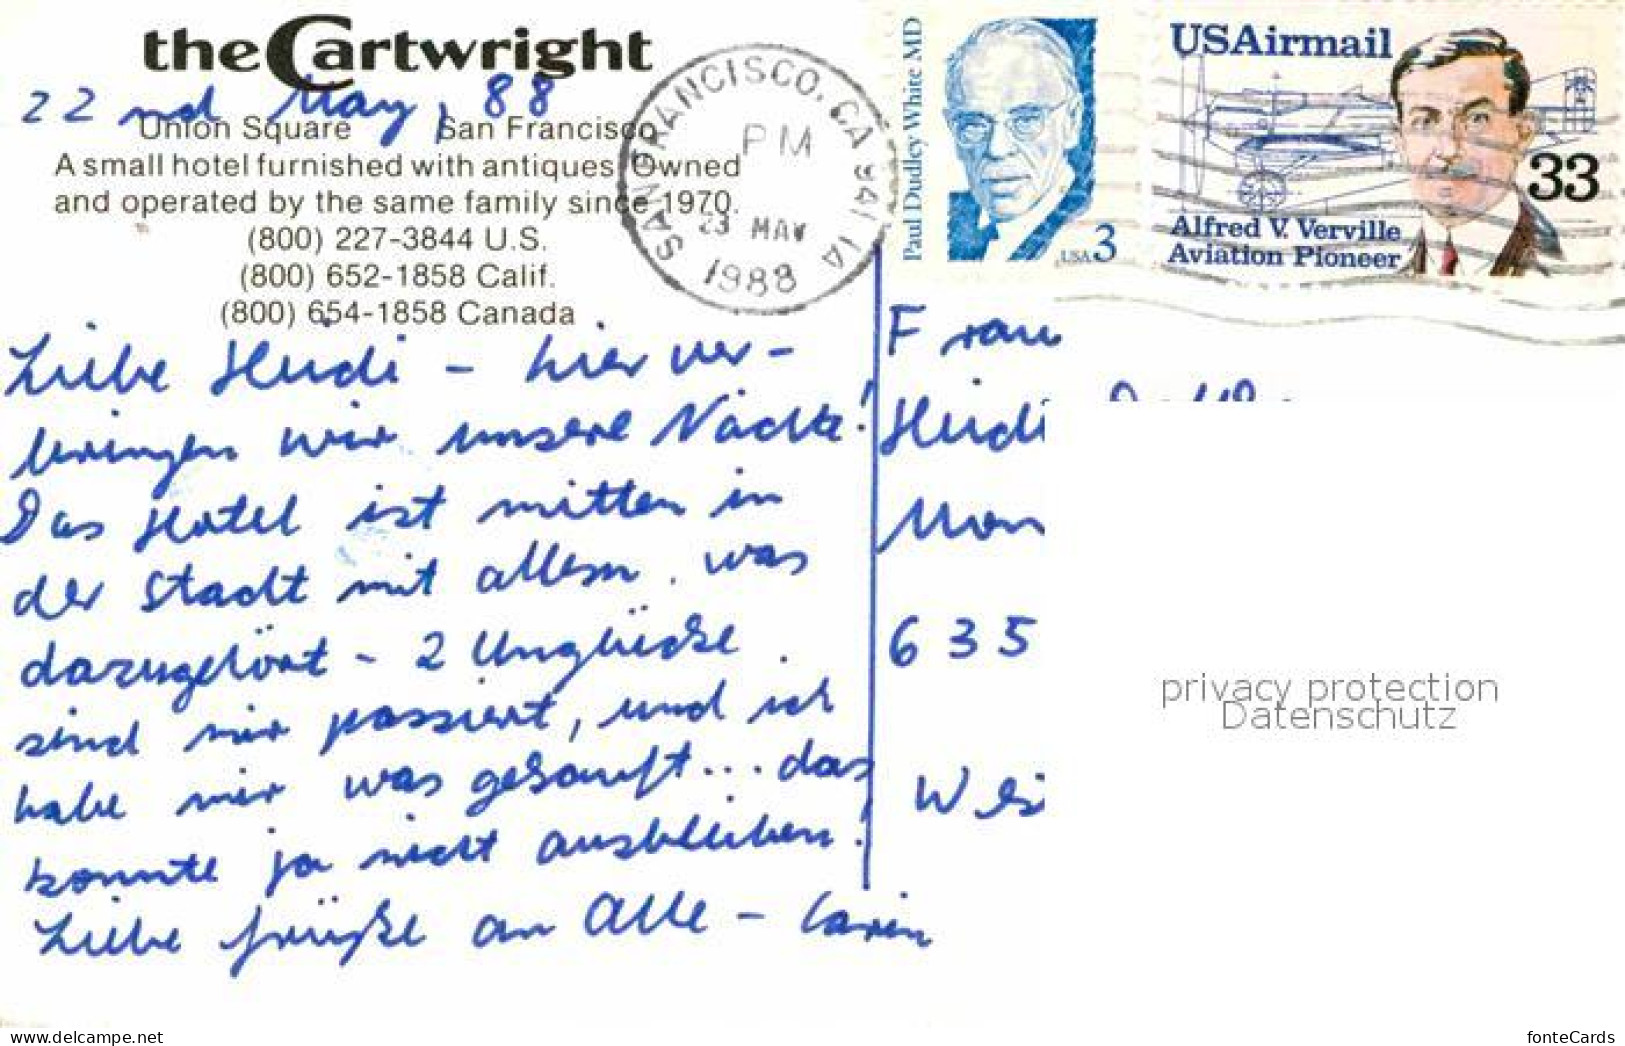 the Cartwright
22nd May, 88
Union Square San Francisco
A small hotel furnished with antiques. Owned
and operated by the same family since 1970.
(800) 227-3844 U.S.
(800) 652-1858 Calif.
(800) 654-1858 Canada
Liebe Heidi - hier ver-
bringen wir unsere Nächte!
Das Hotel ist mitten in
der Stadt mit allem, was
dazugehört - 2 Unglücke
sind mir passiert, und ich
habe mir was gekauft... das
konnte ja nicht ausbleiben!
Liebe Grüße an Alle - Carin
SAN FRANCISCO, CA 941 1A
PM
23 MAY
1988
Paul Dudley White MD
USA 3
USAirmail
33
Alfred V. Verville
Aviation Pioneer
Frau
Heidi
Mon
635
Wei
privacy protection
Datenschutz
www.delcampe.net
fonteCards